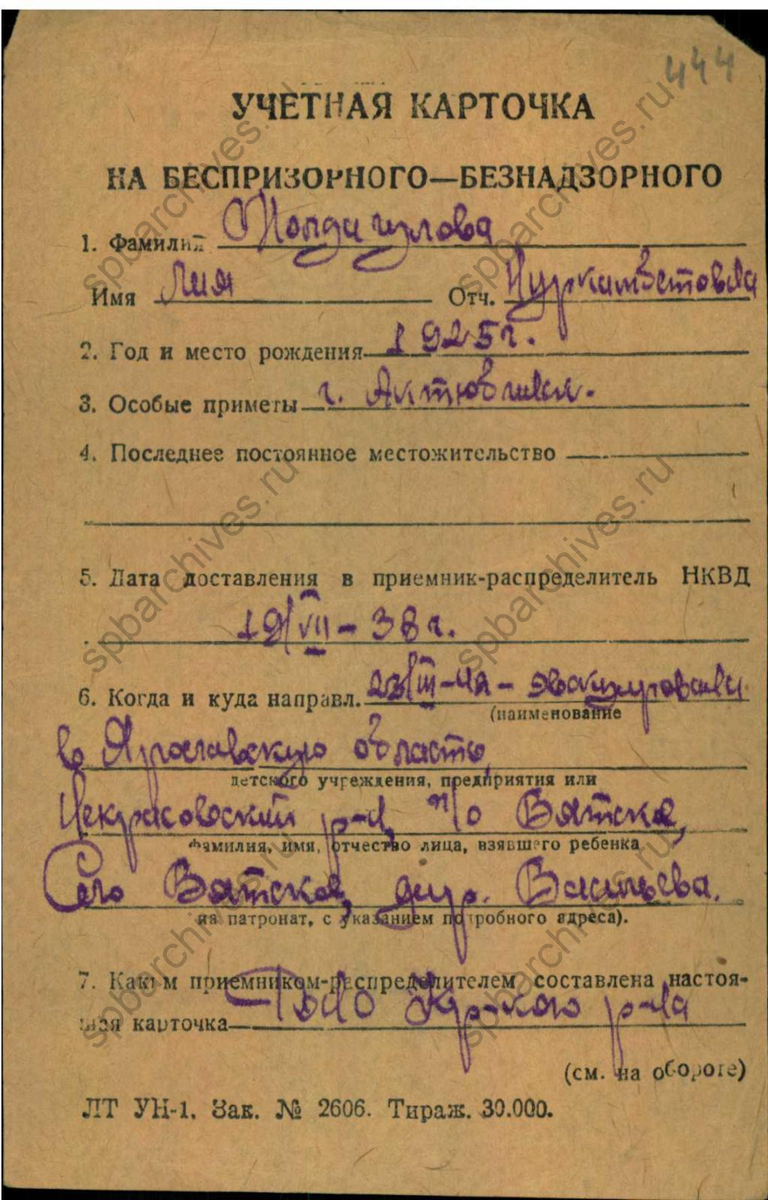 444
УЧЕТНАЯ КАРТОЧКА
НА БЕСПРИЗОРНОГО—БЕЗНАДЗОРНОГО
1. Фамилия Молдагулова
Имя Лия Отч. Нуркамбетовна
2. Год и место рождения 1925 г.
3. Особые приметы г. Актюбинск.
4. Последнее постоянное местожительство
5. Дата доставления в приемник-распределитель НКВД
19/VII – 38 г.
6. Когда и куда направл. 23/III-42 - эвакуирована
(наименование
в Ярославскую область,
детского учреждения, предприятия или
Некрасовский р-н, п/о Вятское,
фамилия, имя, отчество лица, взявшего ребенка
Село Вятское, дир. Васильева.
на патронат, с указанием подробного адреса).
7. Каким приемником-распределителем составлена настоя-
щая карточка р-на
(см. на обороте)
ЛТ УН-1. Зак. № 2606. Тираж. 30.000.
spbarchives.ru